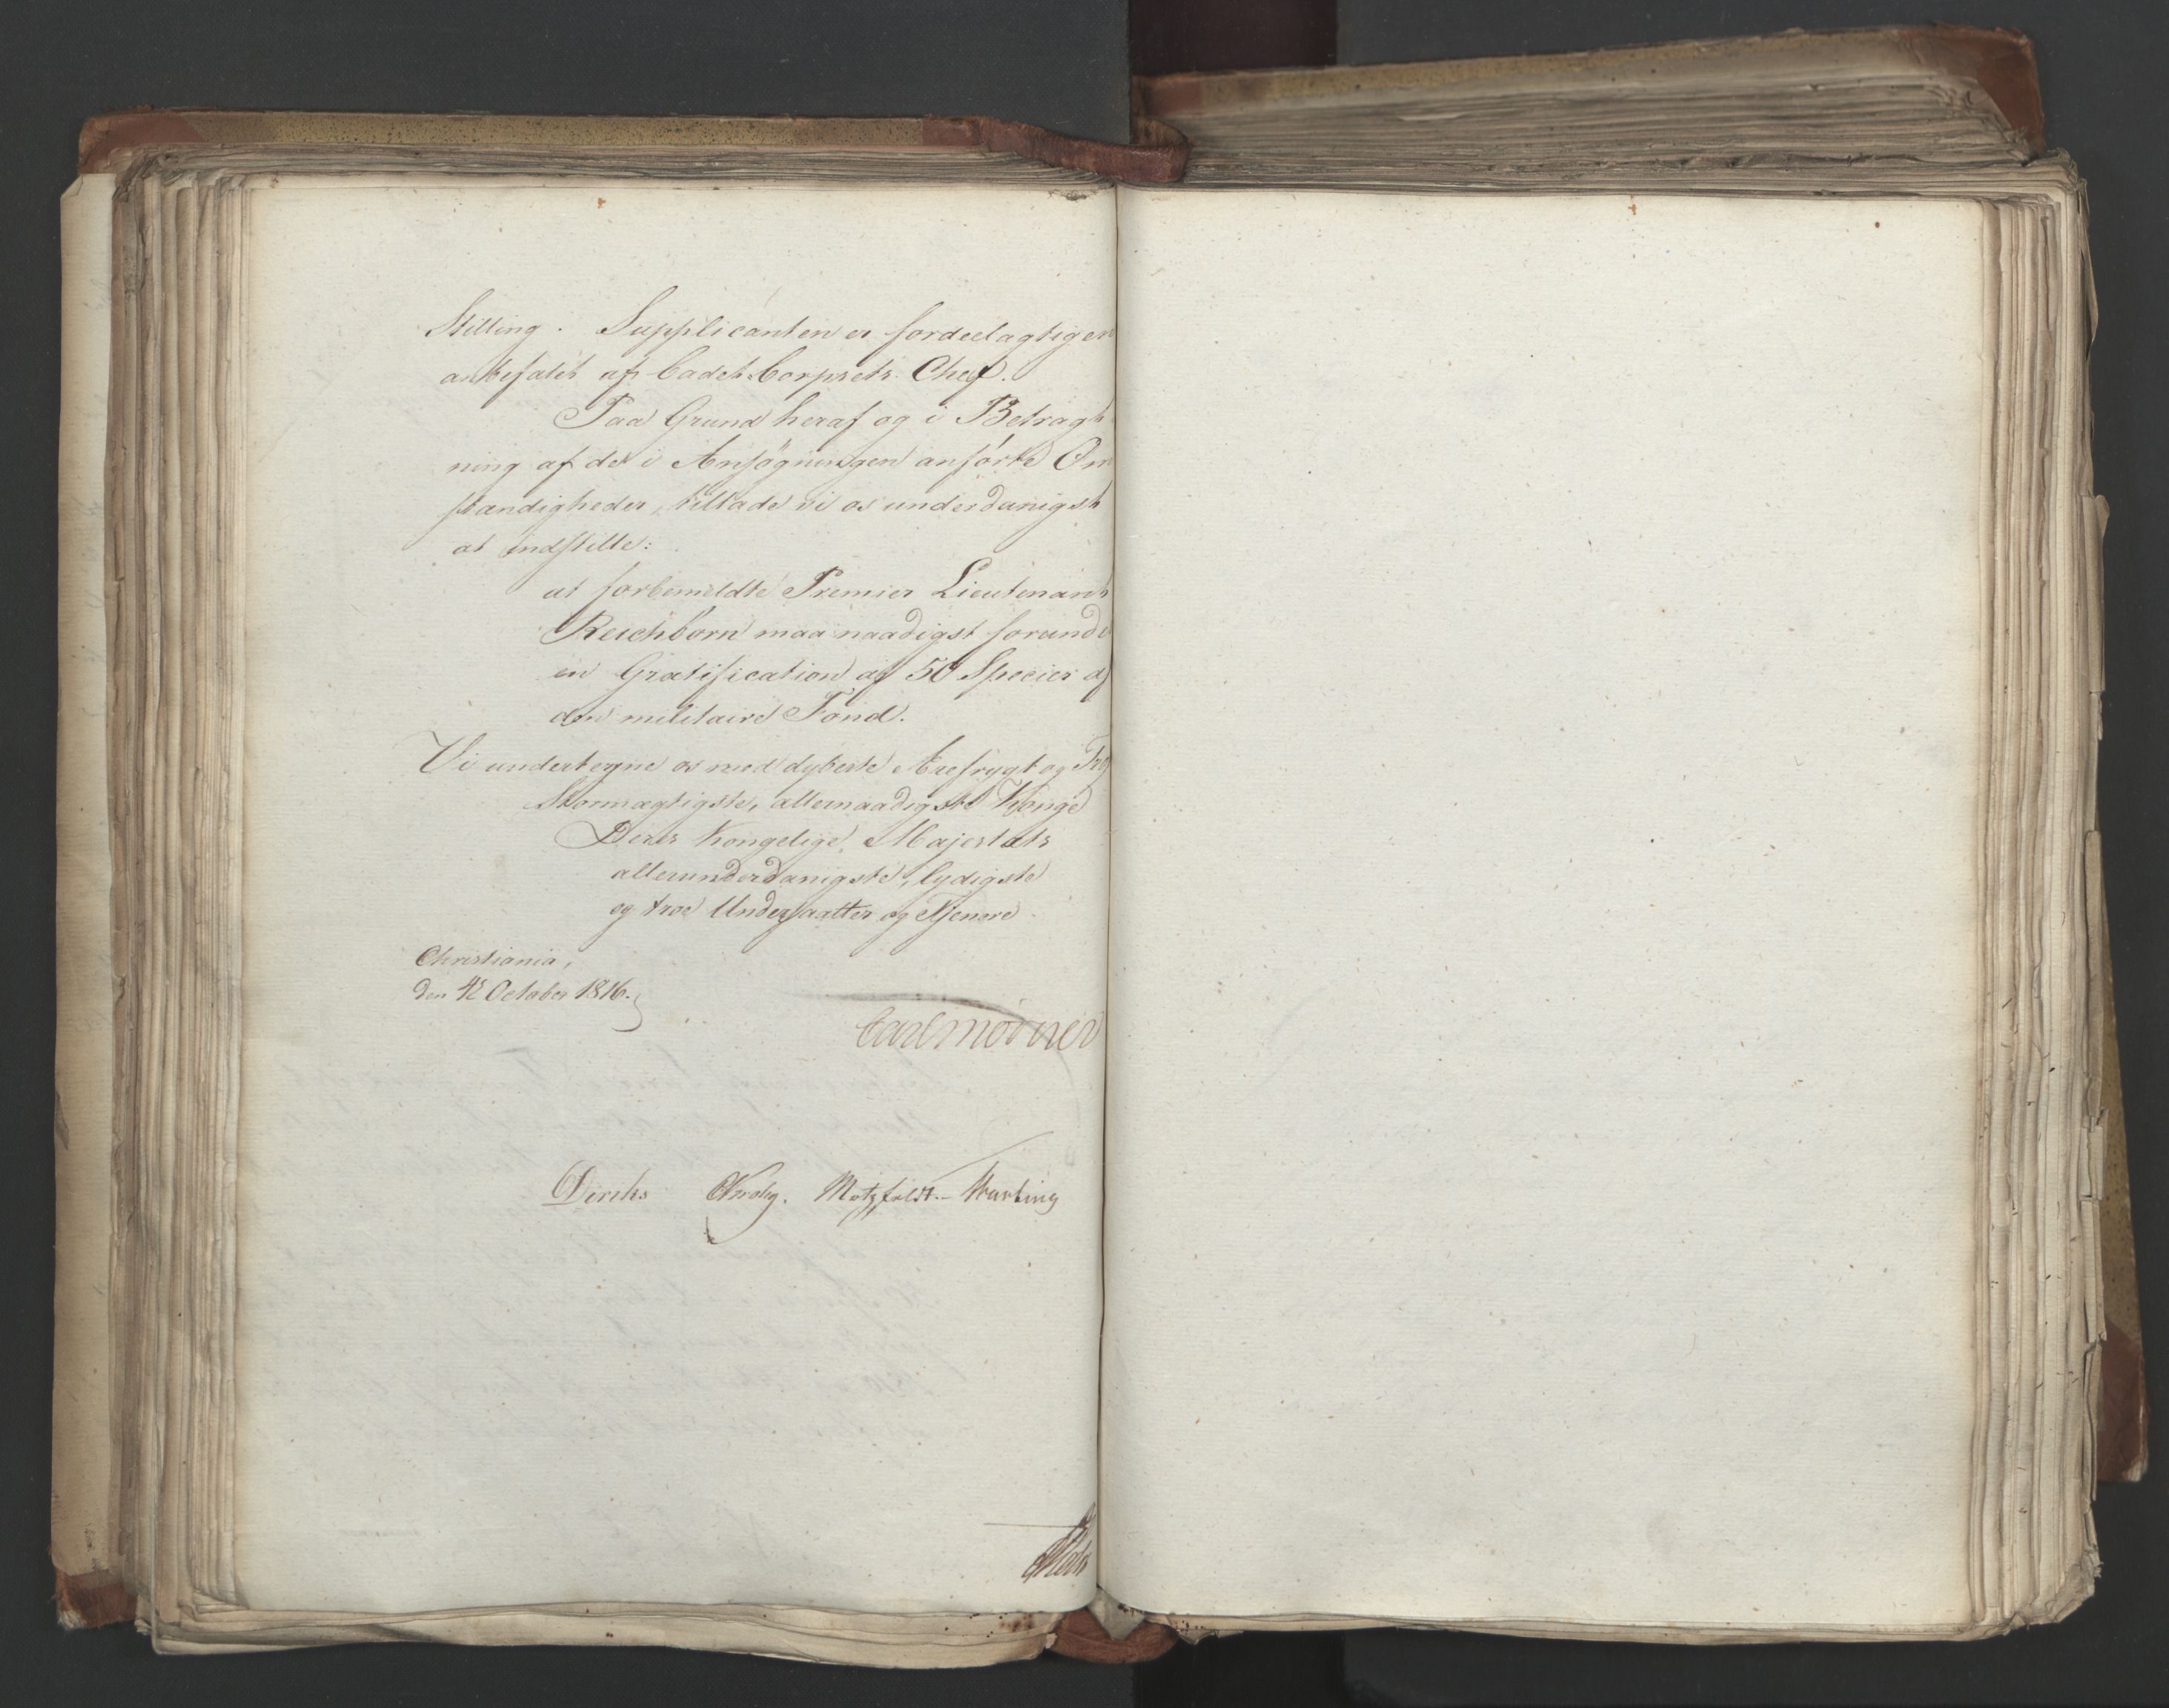 Stilling. Supplicanten er fordeelagtigen
anbefalet af Cadet-Corpsets Chef.
Paa Grund heraf og i Betragt
ning af de i Ansøgningen anførte Om
stændigheder, tillade vi os underdanigst
at indstille:
at forbemeldte Premier Lieutenant
Reichborn maa naadigst forunde
en Gratification af 50 Species af
den militaire Fond.
Vi undertegne os med dybeste Ærefrygt og
Stormægtigste, allernaadigste Konge
Deres Kongelige Majestæts
allerunderdanigste, lydigste
og troe Undersaatter og Tjenere
Christiania,
den 4de October 1816.
Carl Mörner
Diriks Krohg. Motzfeldt.-